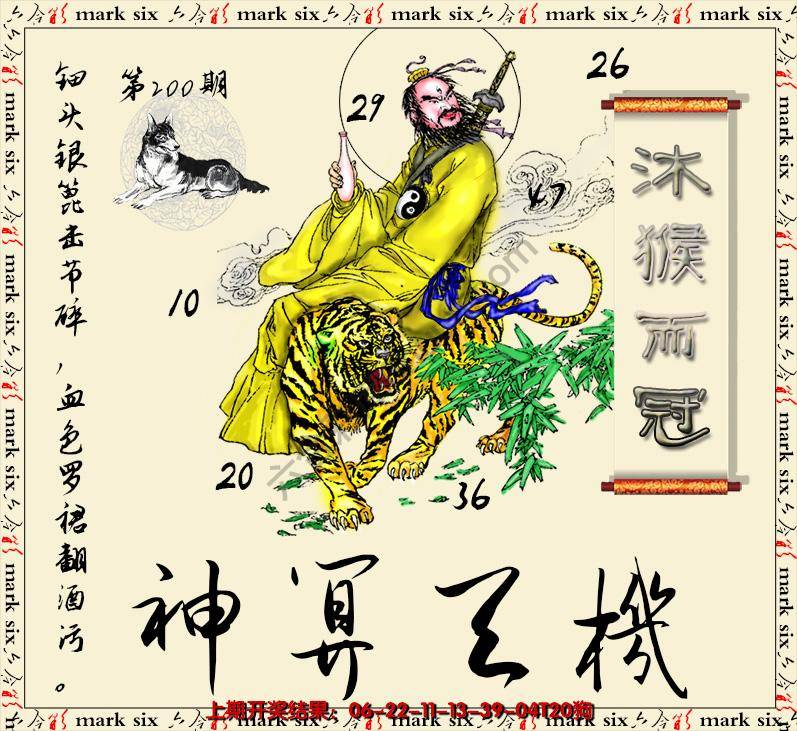 六合彩 mark six 六合彩 mark six 六合彩 mark six 六合彩 mark six 六合彩 mark six 六合彩
mark six 六合彩 mark six 六合彩 mark six 六合彩 mark six 六合彩
钿头银篦击节碎，血色罗裙翻酒污。
第200期
29
26
47
10
20
36
沐猴而冠
神算天機
上期开奖结果：06-22-11-13-39-04T20狗
mark six 六合彩 mark six 六合彩 mark six 六合彩 mark six 六合彩
mark six 六合彩 mark six 六合彩 mark six 六合彩 mark six